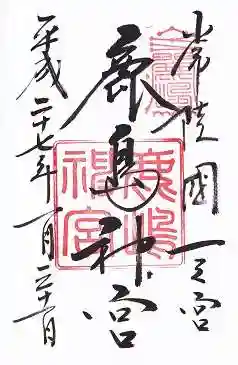 常陸國一之宮
鹿島神宮
平成二十七年一月三十一日
鹿嶋神宮